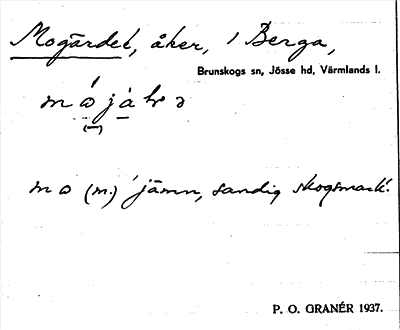 Mogärdet, åker, i Berga,
Brunskogs sn, Jösse hd, Värmlands l.
mo (m.) jämn, sandig skogsmark.
P. O. GRANÉR 1937.